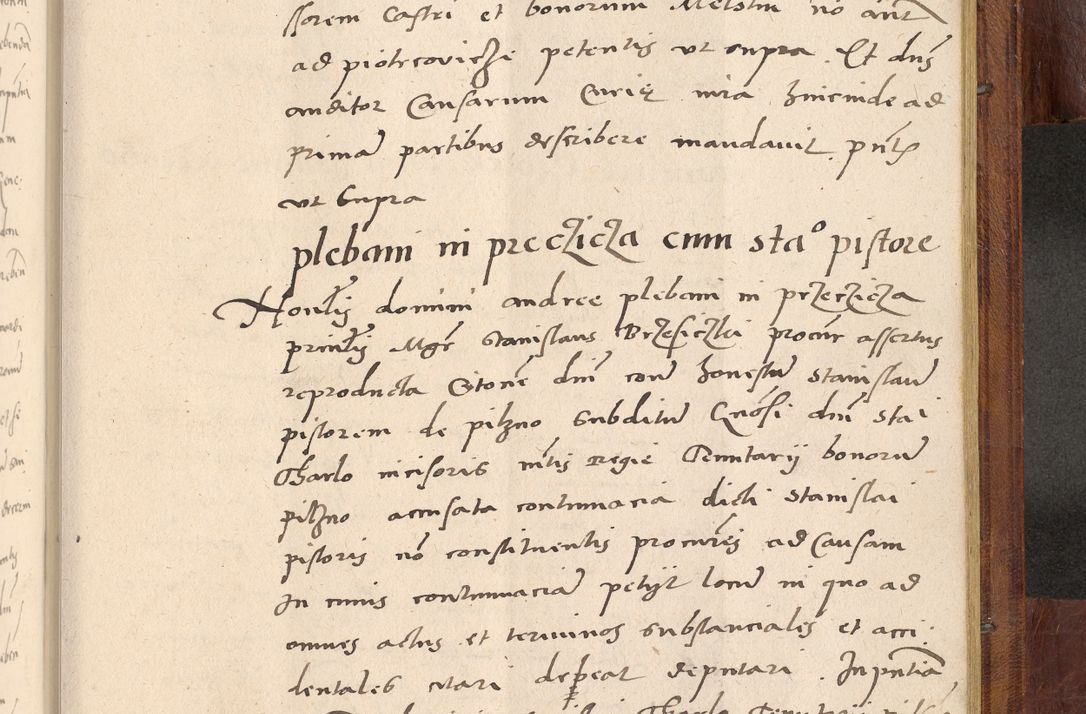 ssorem Castri et bonorum Melstin no ant
ad piotrcoviczi petentis ut supra. Et dns
auditor Causarum Curie mra hincinde ad
primā partibus describere mandavit. pntꝫ
ut Supra
plebani in preczicza cum sta° pistore
Honlis domini andree plebani in przeczicza
princlis Mgr Stanislaus Brzesiczki procur assertus
reproducta Citone dni conē honestū Stanislaū
pistorem de pilzno Subditū Gnosi dni Stai
Tharlo incisoris mtis regie Tenutarij bonorū
pilzno accusata contumacia dicti Stanislai
pistoris nō constituentis procuris ad Causam
In cuius contumaciā petijt locū in quo ad
omnes actus et terminos Substanciales et acci:
dentales citari debeat deputari. In pntia
Tharlo Tenutarij